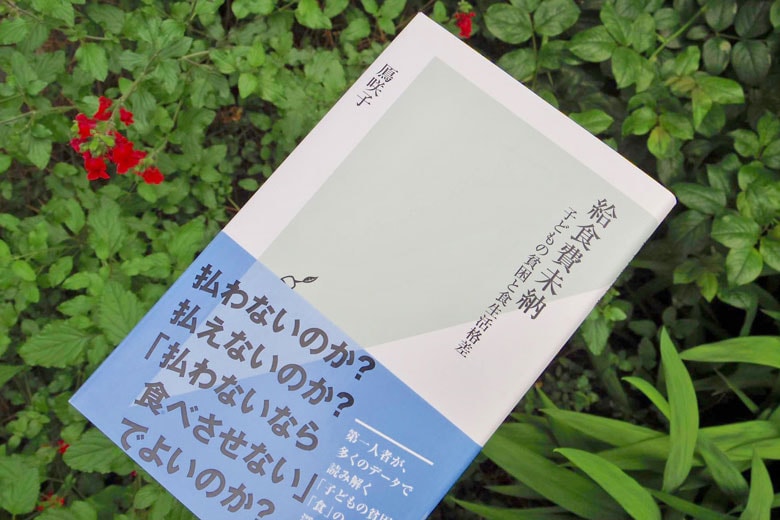 鳫咲子
給食費未納
子どもの貧困と食生活格差
払わないのか?
払えないのか?
「払わないなら
食べさせない」
でよいのか?
第一人者が、
多くのデータで
読み解く
「子どもの貧困
「食」の